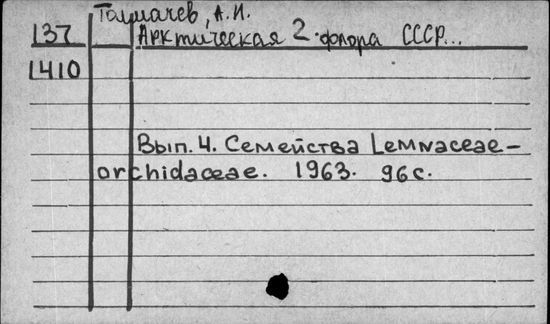 Толмачев, А.И.
137 Арктическая 2 флора СССР...
1410
Вып. 4. Семейства Lemnaceae-
orchidaceae. 1963. 96 с.